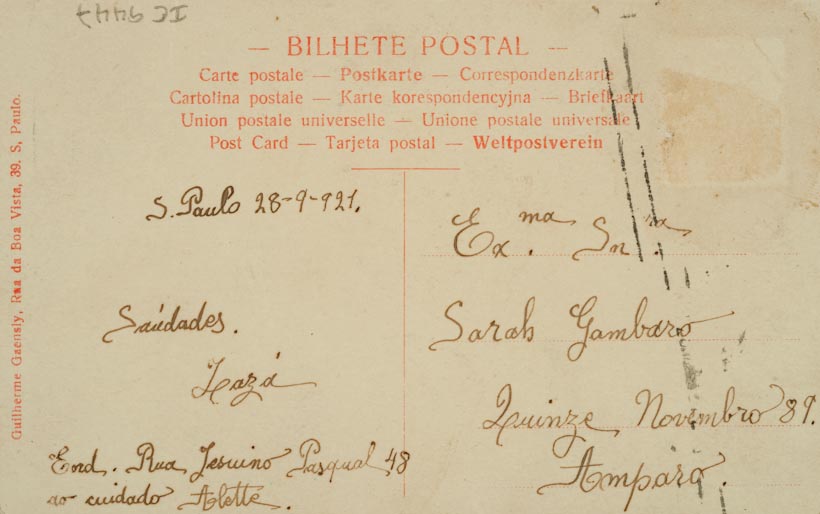 IC 9447
— BILHETE POSTAL —
Carte postale — Postkarte — Correspondenzkarte
Cartolina postale — Karte korespondencyjna — Briefkaart
Union postale universelle — Unione postale universale
Post Card — Tarjeta postal — Weltpostverein
Guilherme Gaensly, Rua da Boa Vista, 39. S, Paulo.
S. Paulo 28-9-921.
Saúdades.
Zazá
End. Rua Jesuino Pasqual 48
ao cuidado Alette.
Ex.ma Sn.ra
Sarah Gambaro
Quinze Novembro 89.
Amparo.